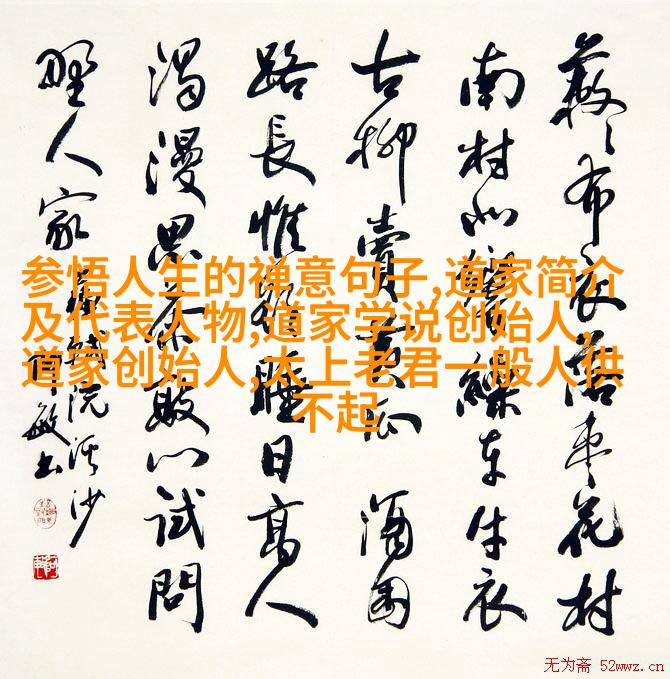 蔌〻布衣落枣花村
南村北響繅車牛衣
古柳賣黄瓜 酒困
路長惟欲睡日高人
渴漫思茶敲門試問
野人家 蘇軾浣溪沙
敏書
参悟人生的禅意句子,道家简介
及代表人物,道家学说创始人,
道家创始人,太上老君一般人供
不起
无为斋 52wwz.cn